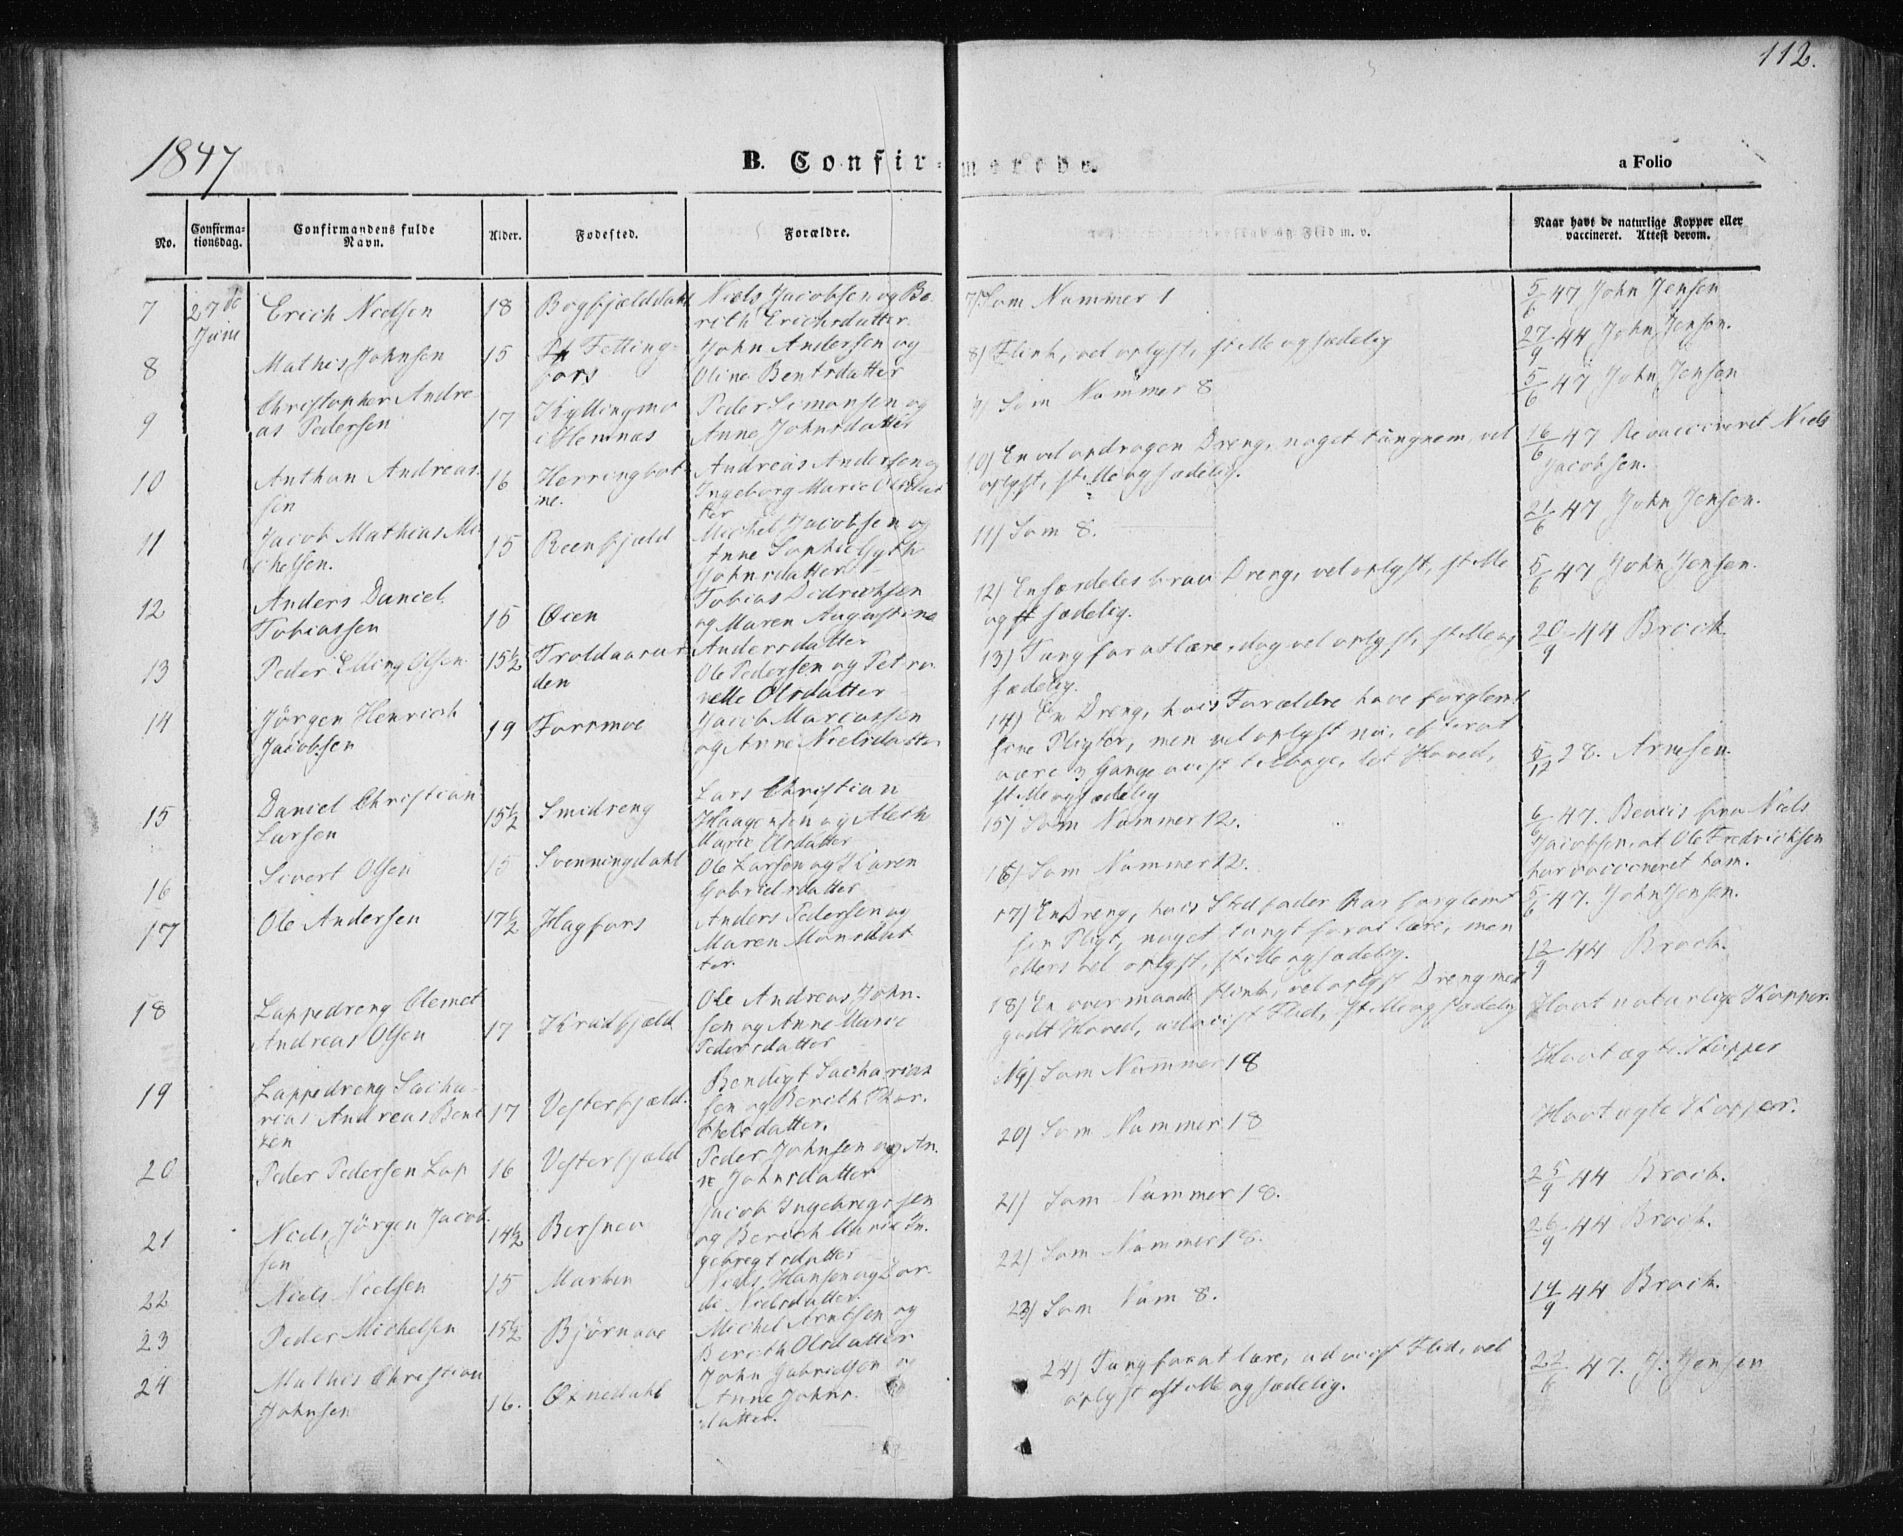 112.
1847
B. Confirmerede.
a Folio
No.
Confirma-
tionsdag.
Confirmandens fulde
Navn.
Alder.
Fødested.
Forældre.
og Flid m. v.
Naar havt de naturlige Kopper eller
vaccineret. Attest derom.
7
27de
Juni
Erich Nielsen
18
Bogfjelddahl
Niels Jacobsen og Be
rith Erichsdatter
7) Som Nummer 1
5/6 47 John Jensen
8
Mathis Johnsen
15
Fetting
fors
John Andersen og
Oline Bentsdatter
8) Flink, vel oplyst, stille og sædelig
27/9 44 John Jensen.
9
Christopher Andre
as Pedersen
17
Kyllingmo
i Hemnæs
Peder Simonsen og
Anne Johnsdatter
9) Som Nummer 8
5/6 47 John Jensen
10
Anthon Andreas
sen
16
Herringbot
ne.
Andreas Andersen og
Ingeborg Marie Olsdat
ter
10) En vel opdragen Dreng, noget tungnem, vel
oplyst, stille og sædelig.
16/6 47 Revaccineret Niels
Jacobsen.
11
Jacob Mathias Mi
chelsen.
15
Reenfjeld
Michel Jacobsen og
Anne Sophie Gyth
Johnsdatter
11) Som 8.
21/6 47 John Jensen.
12
Anders Daniel
Tobiassen
15
Øien
Tobias Didriksen
og Maren Augustine
Andersdatter
12) En særdeles brav Dreng, vel oplyst, stille
og st sædelig.
5/6 47 John Jensen.
13
Peder Elling Olsen
15½
Troldaasur
den
Ole Pedersen og Petro
nelle Olsdatter
13) Tung for at lære, dog vel oplyst, stille og
sædelig.
20/9 44 Brock
14
Jörgen Henrich
Jacobsen
19
Forsmoe
Jacob Marcussen
og Anne Nielsdatter
14) En Dreng, hvis Forældre have forglemt
sine Pligter, men vel oplyst nu, efter at
være 3 Gange avist tilbage, let Hoved,
stille og sædelig
5/12 28. Arnesen.
15
Daniel Christian
Larsen
15½
Smidreng
Lars Christian
Haagensen og Aleth
Marie Olsdatter
15) Som Nummer 12.
6/6 47. Beviis fra Niels
Jacobsen, at Ole Fredricksen
har vaccineret ham.
16
Sivert Olsen
15
Svenningdahl
Ole Larsen og Karen
Gabrielsdatter
16) Som Nummer 12.
5/6 47. John Jensen.
17
Ole Andersen
17½
Hagfors
Anders Pedersen og
Maren Monsdat
ter.
17) En Dreng, hvis Stedfader har forglemt
sin Pligt, noget tungt for at lære, men
ellers vel oplyst, stille og sædelig.
12/9 44 Brock.
18
Lappedreng Clemet
Andreas Olsen
17
Krudfjeld
Ole Andreas John
sen og Anne Marie
Pedersdatter
18) En overmaade flink, vel oplyst Dreng med
godt Hoved, udviist Flid, stille og sædelig
Havt naturlige Kopper.
19
Lappedreng Sacha
rias Andreas Bent
zen
17
Vesterfjeld.
Bendigt Sacharias
sen og Berith Thor
kelsdatter.
19) Som Nummer 18
Havt ægte Kopper
20
Peder Pedersen Lap
16
Vesterfjeld
Peder Johnsen og An
ne Johnsdatter
20) Som Nummer 18
Havt ægte Kopper.
21
Niels Jörgen Jacob
sen
14½
Bersnev
Jacob Ingebregtsen
og Berith Marie In
gebregtsdatter
21) Som Nummer 18.
25/9 44 Brock.
22
Niels Nielsen
15
Marken
Niels Hansen og Dor
de Nielsdatter
22) Som Nummer 18.
26/9 44 Brock.
23
Peder Michelsen
15½
Bjørnaae
Michel Arntsen og
Berith Olsdatter
23) Som Num 8.
14/9 44 Brock.
24
Mathis Christian
Johnsen
16.
Øxnedahl
John Gabrielsen og
Anne Johns
datter.
24) Tung for at lære, udviist Flid, vel
oplyst stille og sædelig.
22/6 47. J. Jensen